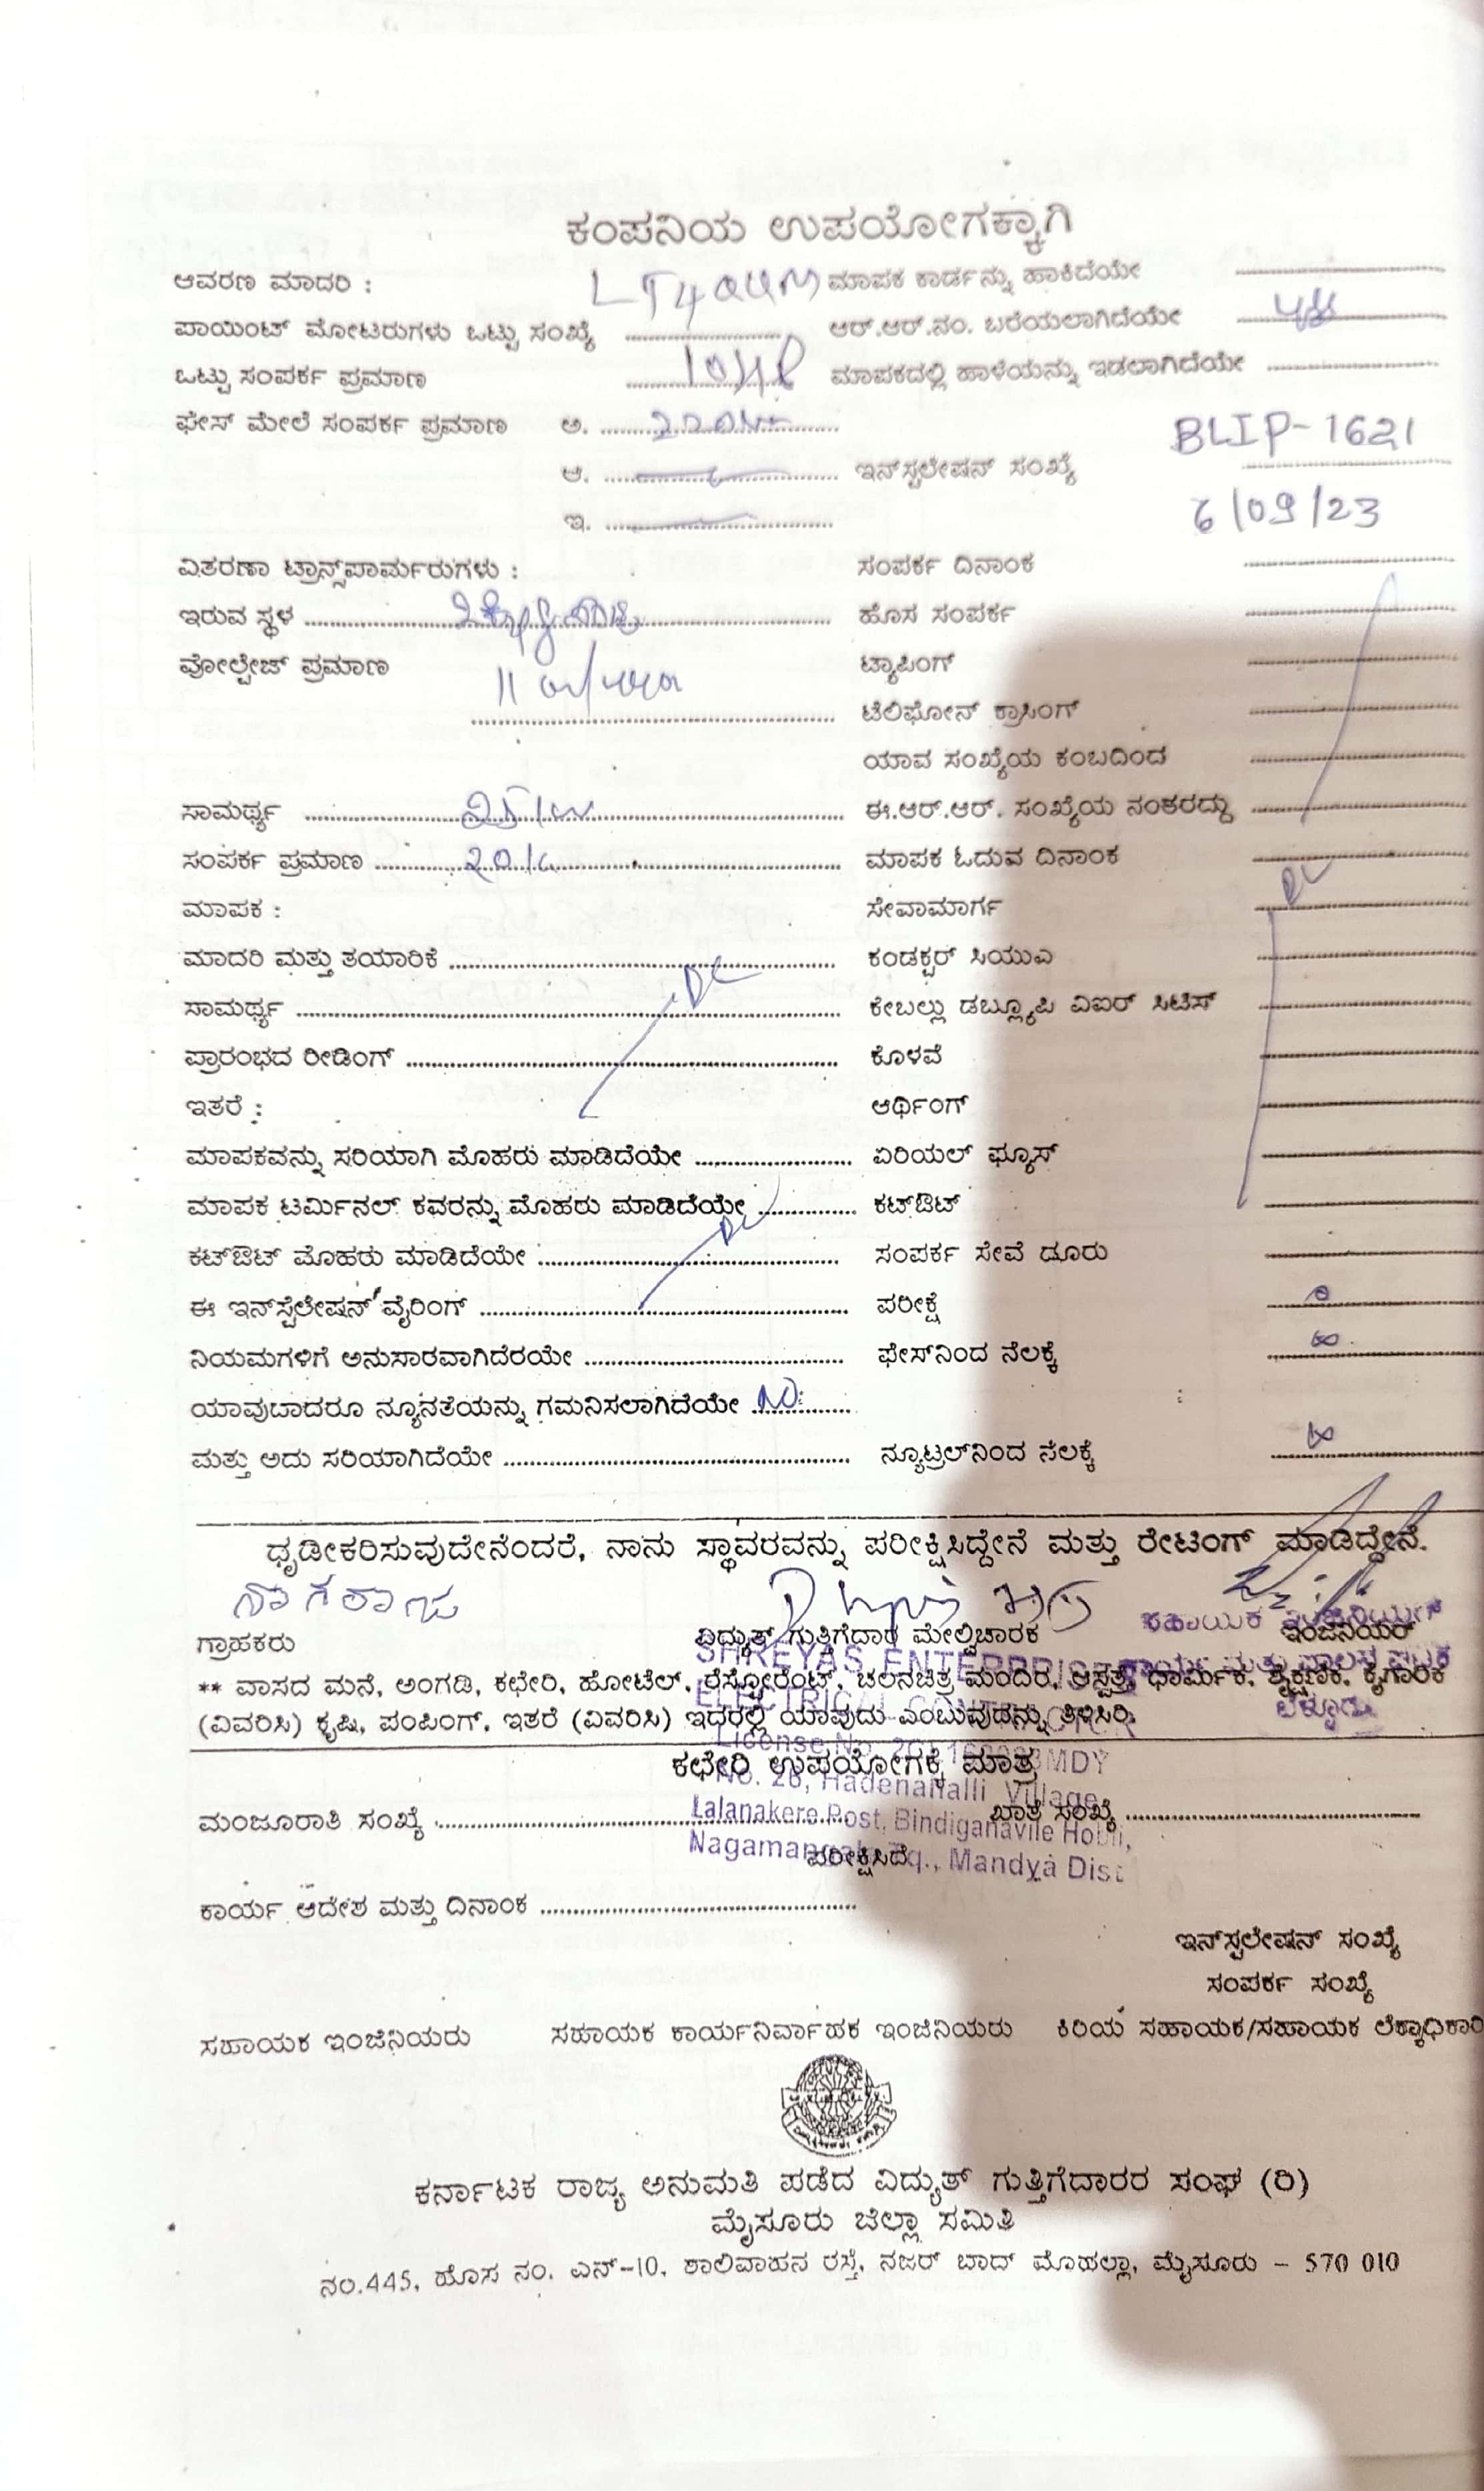 ಕಂಪನಿಯ ಉಪಯೋಗಕ್ಕಾಗಿ
ಆವರಣ ಮಾದರಿ : LT4 ಮಾಪಕ ಕಾರ್ಡನ್ನು ಹಾಕಿದೆಯೇ
ಪಾಯಿಂಟ್ ಮೋಟರುಗಳು ಒಟ್ಟು ಸಂಖ್ಯೆ ಆರ್.ಆರ್.ನಂ. ಬರೆಯಲಾಗಿದೆಯೇ
ಒಟ್ಟು ಸಂಪರ್ಕ ಪ್ರಮಾಣ ಮಾಪಕದಲ್ಲಿ ಹಾಳೆಯನ್ನು ಇಡಲಾಗಿದೆಯೇ
ಫೇಸ್ ಮೇಲೆ ಸಂಪರ್ಕ ಪ್ರಮಾಣ ಅ.
ಆ. ಇನ್‌ಸ್ಟಲೇಷನ್ ಸಂಖ್ಯೆ BLIP-1621
ಇ. 6/09/23
ವಿತರಣಾ ಟ್ರಾನ್ಸ್‌ಪಾರ್ಮರುಗಳು : ಸಂಪರ್ಕ ದಿನಾಂಕ
ಇರುವ ಸ್ಥಳ ಹೊಸ ಸಂಪರ್ಕ
ವೋಲ್ಟೇಜ್ ಪ್ರಮಾಣ ಟ್ಯಾಪಿಂಗ್
ಟೆಲಿಫೋನ್ ಕ್ರಾಸಿಂಗ್
ಯಾವ ಸಂಖ್ಯೆಯ ಕಂಬದಿಂದ
ಸಾಮರ್ಥ್ಯ ಈ.ಆರ್.ಆರ್. ಸಂಖ್ಯೆಯ ನಂತರದ್ದು
ಸಂಪರ್ಕ ಪ್ರಮಾಣ ಮಾಪಕ ಓದುವ ದಿನಾಂಕ
ಮಾಪಕ : ಸೇವಾಮಾರ್ಗ
ಮಾದರಿ ಮತ್ತು ತಯಾರಿಕೆ ಕಂಡಕ್ಟರ್ ಸಿಯುಎ
ಸಾಮರ್ಥ್ಯ ಕೇಬಲ್ಲು ಡಬ್ಲ್ಯೂಪಿ ವಿಐರ್ ಸಿಟಿಸ್
ಪ್ರಾರಂಭದ ರೀಡಿಂಗ್ ಕೊಳವೆ
ಇತರೆ : ಆರ್ಥಿಂಗ್
ಮಾಪಕವನ್ನು ಸರಿಯಾಗಿ ಮೊಹರು ಮಾಡಿದೆಯೇ ಏರಿಯಲ್ ಫ್ಯೂಸ್
ಮಾಪಕ ಟರ್ಮಿನಲ್ ಕವರನ್ನು ಮೊಹರು ಮಾಡಿದೆಯೇ ಕಟ್‌ಔಟ್
ಕಟ್‌ಔಟ್ ಮೊಹರು ಮಾಡಿದೆಯೇ ಸಂಪರ್ಕ ಸೇವೆ ದೂರು
ಈ ಇನ್‌ಸ್ಟೆಲೇಷನ್ ವೈರಿಂಗ್ ಪರೀಕ್ಷೆ
ನಿಯಮಗಳಿಗೆ ಅನುಸಾರವಾಗಿದೆರಯೇ ಫೇಸ್‌ನಿಂದ ನೆಲಕ್ಕೆ
ಯಾವುಬಾದರೂ ನ್ಯೂನತೆಯನ್ನು ಗಮನಿಸಲಾಗಿದೆಯೇ NO
ಮತ್ತು ಅದು ಸರಿಯಾಗಿದೆಯೇ ನ್ಯೂಟ್ರಲ್‌ನಿಂದ ನೆಲಕ್ಕೆ
ಧೃಡೀಕರಿಸುವುದೇನೆಂದರೆ, ನಾನು ಸ್ಥಾವರವನ್ನು ಪರೀಕ್ಷಿಸಿದ್ದೇನೆ ಮತ್ತು ರೇಟಿಂಗ್ ಮಾಡಿದ್ದೇನೆ.
ನಾಗರಾಜ
ಗ್ರಾಹಕರು ವಿದ್ಯುತ್ ಗುತ್ತಿಗೆದಾರ ಮೇಲ್ವಿಚಾರಕ ಸಹಾಯಕ ಇಂಜಿನಿಯರ್
SHREYAS ENTERPRISES
** ವಾಸದ ಮನೆ, ಅಂಗಡಿ, ಕಛೇರಿ, ಹೋಟೆಲ್, ರೆಸ್ಟೋರೆಂಟ್, ಚಲನಚಿತ್ರ ಮಂದಿರ, ಆಸ್ಪತ್ರೆ, ಧಾರ್ಮಿಕ, ಶೈಕ್ಷಣಿಕ, ಕೈಗಾರಿಕೆ
ELECTRICAL
(ವಿವರಿಸಿ) ಕೃಷಿ, ಪಂಪಿಂಗ್, ಇತರೆ (ವಿವರಿಸಿ) ಇದರಲ್ಲಿ ಯಾವುದು ಎಂಬುವುದನ್ನು ತಿಳಿಸಿರಿ.
License No.
ಕಛೇರಿ ಉಪಯೋಗಕ್ಕೆ ಮಾತ್ರ
No. 26, Hadenahalli Village,
ಮಂಜೂರಾತಿ ಸಂಖ್ಯೆ ಖಾತೆ ಸಂಖ್ಯೆ
Lalanakere Post, Bindiganavile Hobli,
ಪರೀಕ್ಷಿಸಿದೆ
Nagamangala Tq., Mandya Dist
ಕಾರ್ಯ ಆದೇಶ ಮತ್ತು ದಿನಾಂಕ
ಇನ್‌ಸ್ಟಲೇಷನ್ ಸಂಖ್ಯೆ
ಸಂಪರ್ಕ ಸಂಖ್ಯೆ
ಸಹಾಯಕ ಇಂಜಿನಿಯರು ಸಹಾಯಕ ಕಾರ್ಯನಿರ್ವಾಹಕ ಇಂಜಿನಿಯರು ಕಿರಿಯ ಸಹಾಯಕ/ಸಹಾಯಕ ಲೆಕ್ಕಾಧಿಕಾರಿ
ಕರ್ನಾಟಕ ರಾಜ್ಯ ಅನುಮತಿ ಪಡೆದ ವಿದ್ಯುತ್ ಗುತ್ತಿಗೆದಾರರ ಸಂಘ (ರಿ)
ಮೈಸೂರು ಜಿಲ್ಲಾ ಸಮಿತಿ
ನಂ.445, ಹೊಸ ನಂ. ಎನ್-10, ಶಾಲಿವಾಹನ ರಸ್ತೆ, ನಜರ್ ಬಾದ್ ಮೊಹಲ್ಲಾ, ಮೈಸೂರು - 570 010